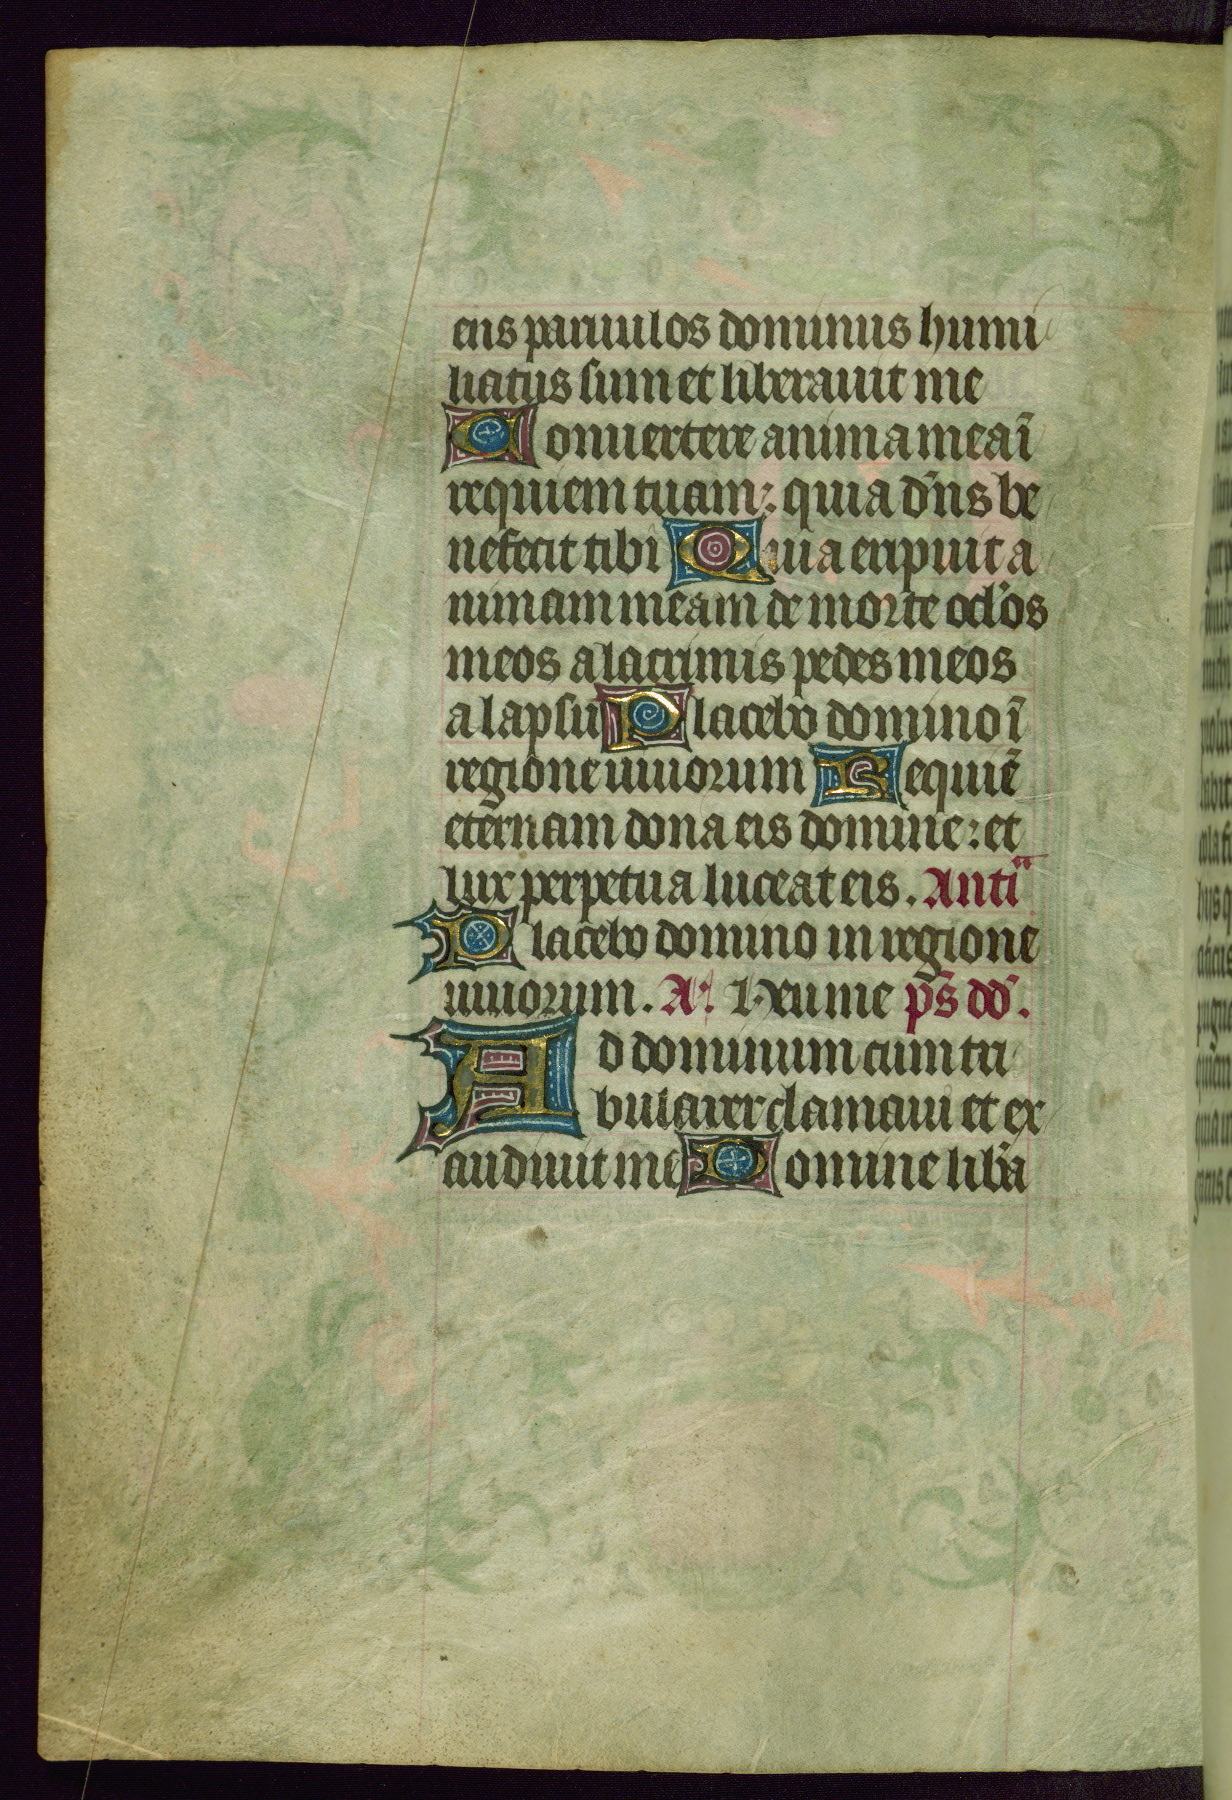 ens paruulos dominus humi
liatus sum et liberauit me
Conuertere anima mea ī
requiem tuam: quia dn̄s be
nefecit tibi Quia eripuit a
nimam meam de morte oclos
meos a lacrimis pedes meos
a lapsu Placebo domino ī
regione uiuorum Requiē
eternam dona eis domine: et
lux perpetua luceat eis. Anti
Placebo domino in regione
uiuorum. A. Heu me ps̄ dd̄.
Ad dominum cum tri
bularer clamaui et ex
audiuit me Domine lib̄a